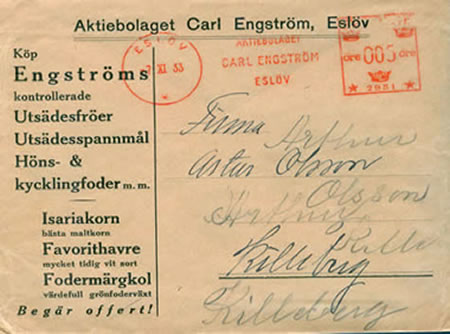 Aktiebolaget Carl Engström, Eslöv
Köp
Engströms
kontrollerade
Utsädesfröer
Utsädesspannmål
Höns- &
kycklingfoder m. m.
Isariakorn
bästa maltkorn
Favorithavre
mycket tidig vit sort
Fodermärgkol
värdefull grönfoderväxt
Begär offert!
ESLÖV
XI 33
AKTIEBOLAGET
CARL ENGSTRÖM
ESLÖV
öre 005 öre
2931
Firma Arthur
Artur Olsson
Olsson
Arthur
Killeberg Kille
Killeberg